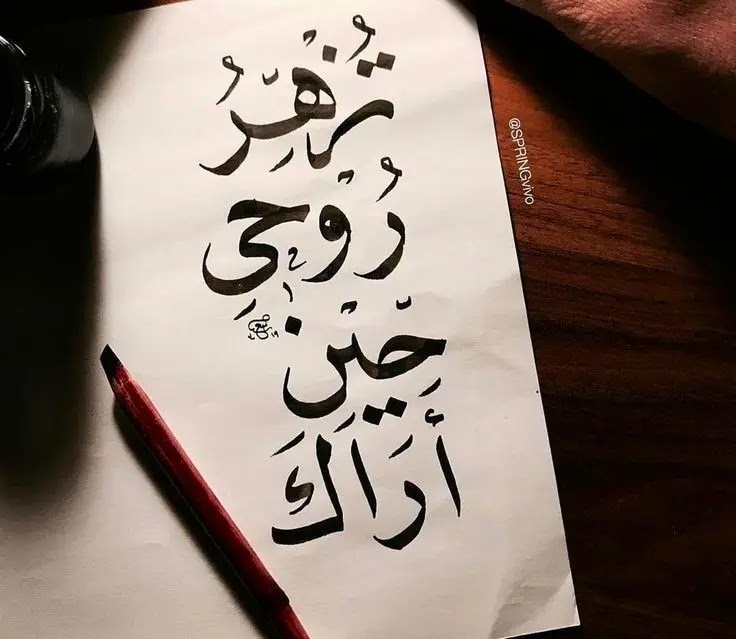 تُزْهِرُ
رُوْحِى
حِيْن
أَرَاكَ
@SPRINGvivo